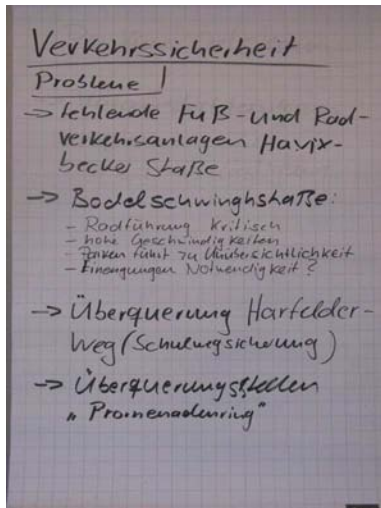 Verkehrssicherheit
Probleme
-> fehlende Fuß- und Rad-
verkehrsanlagen Havix-
becker Staße
-> Bodelschwinghstaße:
- Radführung kritisch
- hohe Geschwindigkeiten
- Parken führt zu Unübersichtlichkeit
- Einengungen Notwendigkeit?
-> Überquerung Harfelder-
Weg (Schulwegsicherung)
-> Überquerungsstellen
„Promenadenring"